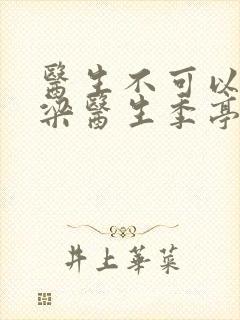 醫生不可以
梁醫生季亭
井上華菜